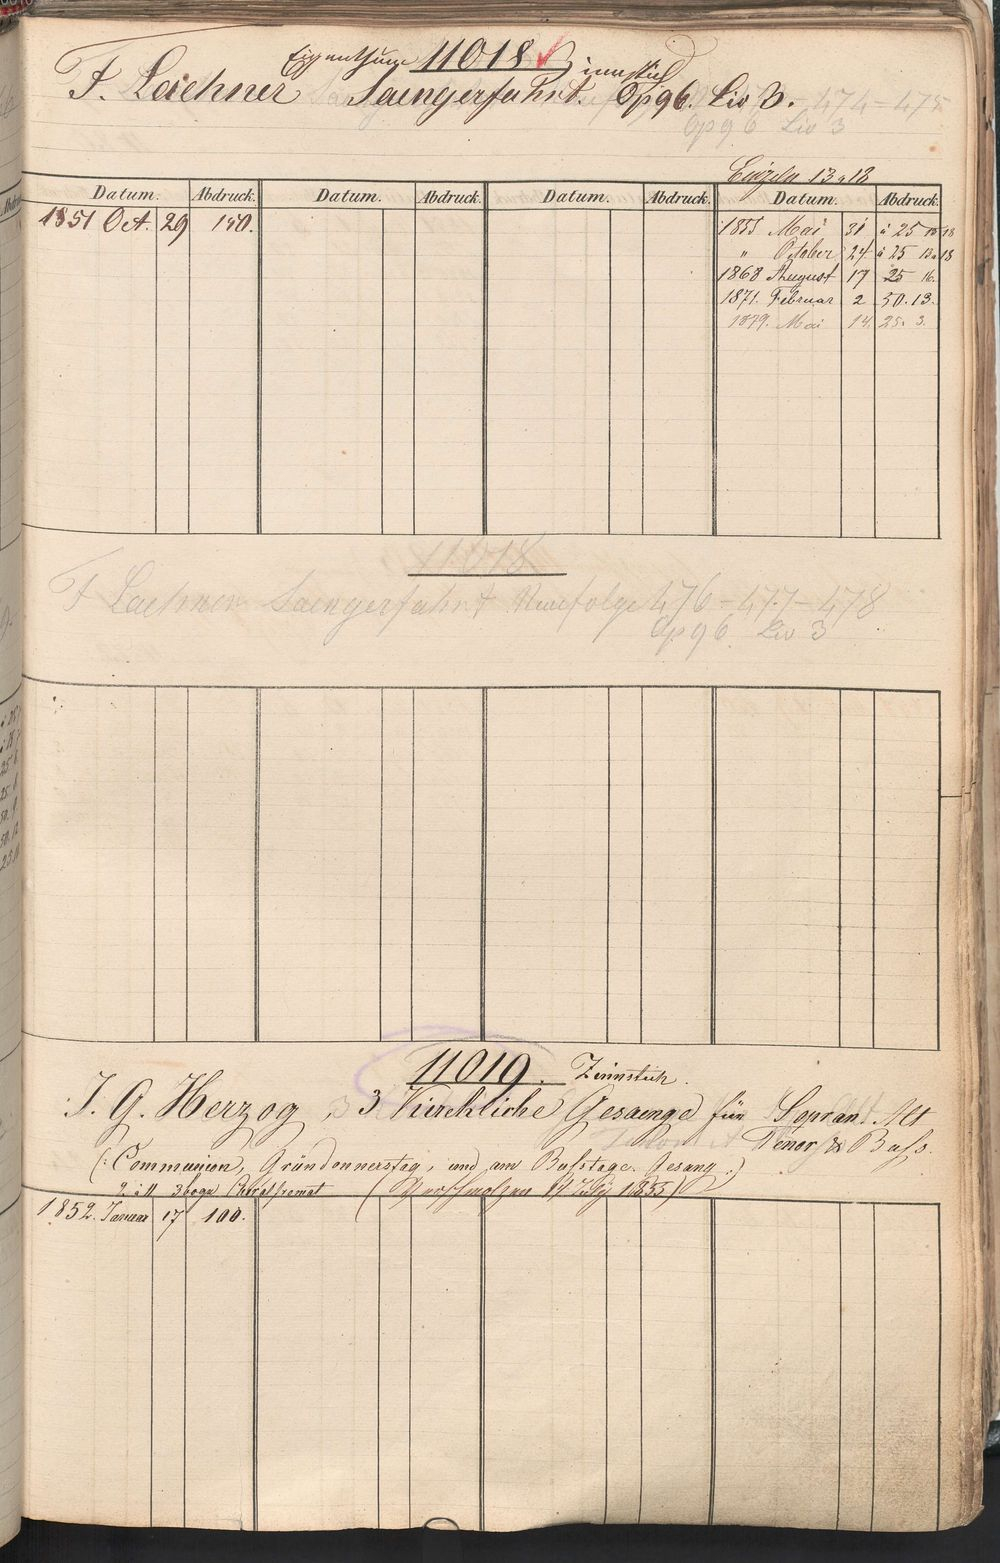 Eigenthum 11018
F. Lachner Saengerfahrt. Op 96. Liv 3.
474 - 475
Op 96 Liv 3
Einzeln 13 a 18
Datum. Abdruck. Datum. Abdruck. Datum. Abdruck. Datum. Abdruck.
1851 Oct. 29 150.
1855 Mai 31 à 25 13 a 18
" October 24 à 25 13 a 18
1868 August 17 25 16.
1871. Februar 2 50. 13.
1879. Mai 14. 25. 3.
11018
F Lachner Saengerfahrt Neuefolge 476 - 477 - 478
Op 96 Liv 3
11019. Zinnstich.
J. G. Herzog, 3 Kirchliche Gesaenge für Sopran. Alt
Tenor & Bass.
(: Communion, Gründonnerstag, und am Busstage. Gesang :)
3 bogn Choralformat (Verschmolzen 14 July 1855)
1852. Januar 17 100.